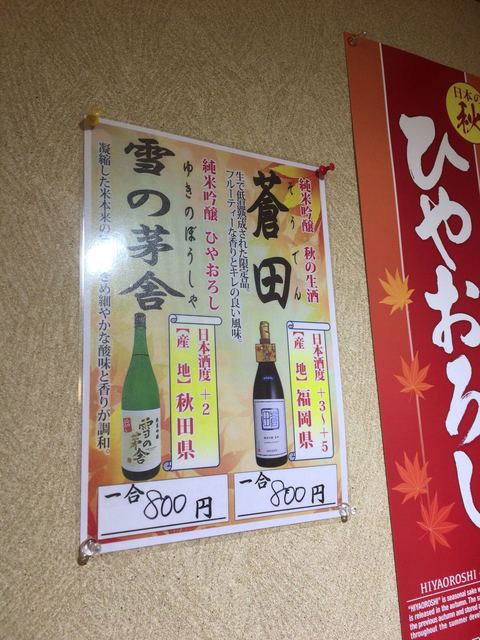 純米吟醸 秋の生酒
蒼田
そうでん
生で低温熟成された限定品。
フルーティーな香りとキレの良い風味。
日本酒度 +3~+5
【産 地】福岡県
一合 800円
純米吟醸 ひやおろし
ゆきのぼうしゃ
雪の茅舎
凝縮した米本来の
きめ細やかな酸味と香りが調和。
日本酒度 +2
【産 地】秋田県
一合 800円
雪の茅舎
日本の
秋
ひやおろし
HIYAOROSHI
"HIYAOROSHI" is seasonal sake
is released in the autumn. The
the previous autumn and stored
throughout the summer